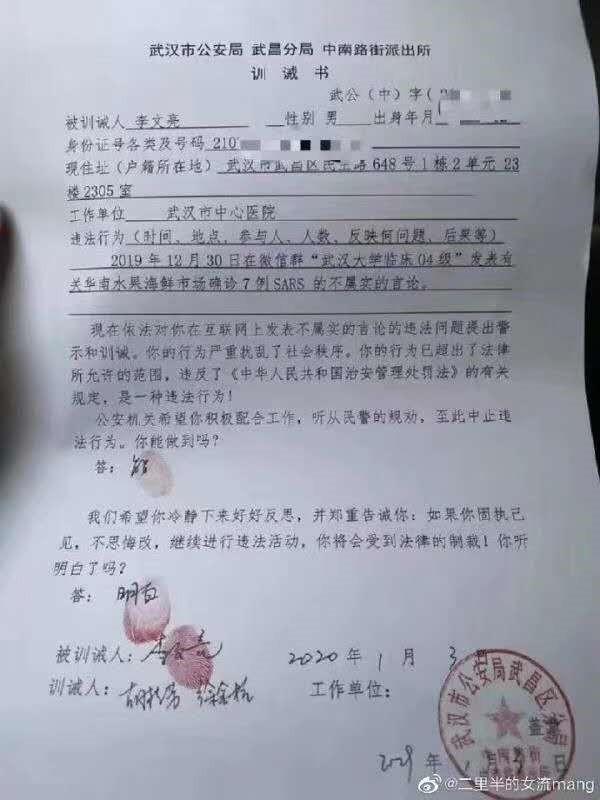 武汉市公安局 武昌分局 中南路街派出所
训诫书
武公(中)字(
被训诫人 李文亮 性别 男 出身年月
身份证号各类及号码 210
现住址(户籍所在地) 武汉市武昌区民主路648号1栋2单元23
楼2305室
工作单位 武汉市中心医院
违法行为(时间、地点、参与人、人数、反映何问题、后果等)
2019年12月30日在微信群“武汉大学临床04级”发表有
关华南水果海鲜市场确诊7例SARS的不属实的言论。
现在依法对你在互联网上发表不属实的言论的违法问题提出警
示和训诫。你的行为严重扰乱了社会秩序。你的行为已超出了法律
所允许的范围，违反了《中华人民共和国治安管理处罚法》的有关
规定，是一种违法行为！
公安机关希望你积极配合工作，听从民警的规劝，至此中止违
法行为。你能做到吗？
答：能
我们希望你冷静下来好好反思，并郑重告诫你：如果你固执己
见，不思悔改，继续进行违法活动，你将会受到法律的制裁！你听
明白了吗？
答：明白
被训诫人：李文亮 2020年1月3日
训诫人： 工作单位：
武汉市公安局武昌区分局
盖章
年1月3日
@二里半的女流mang